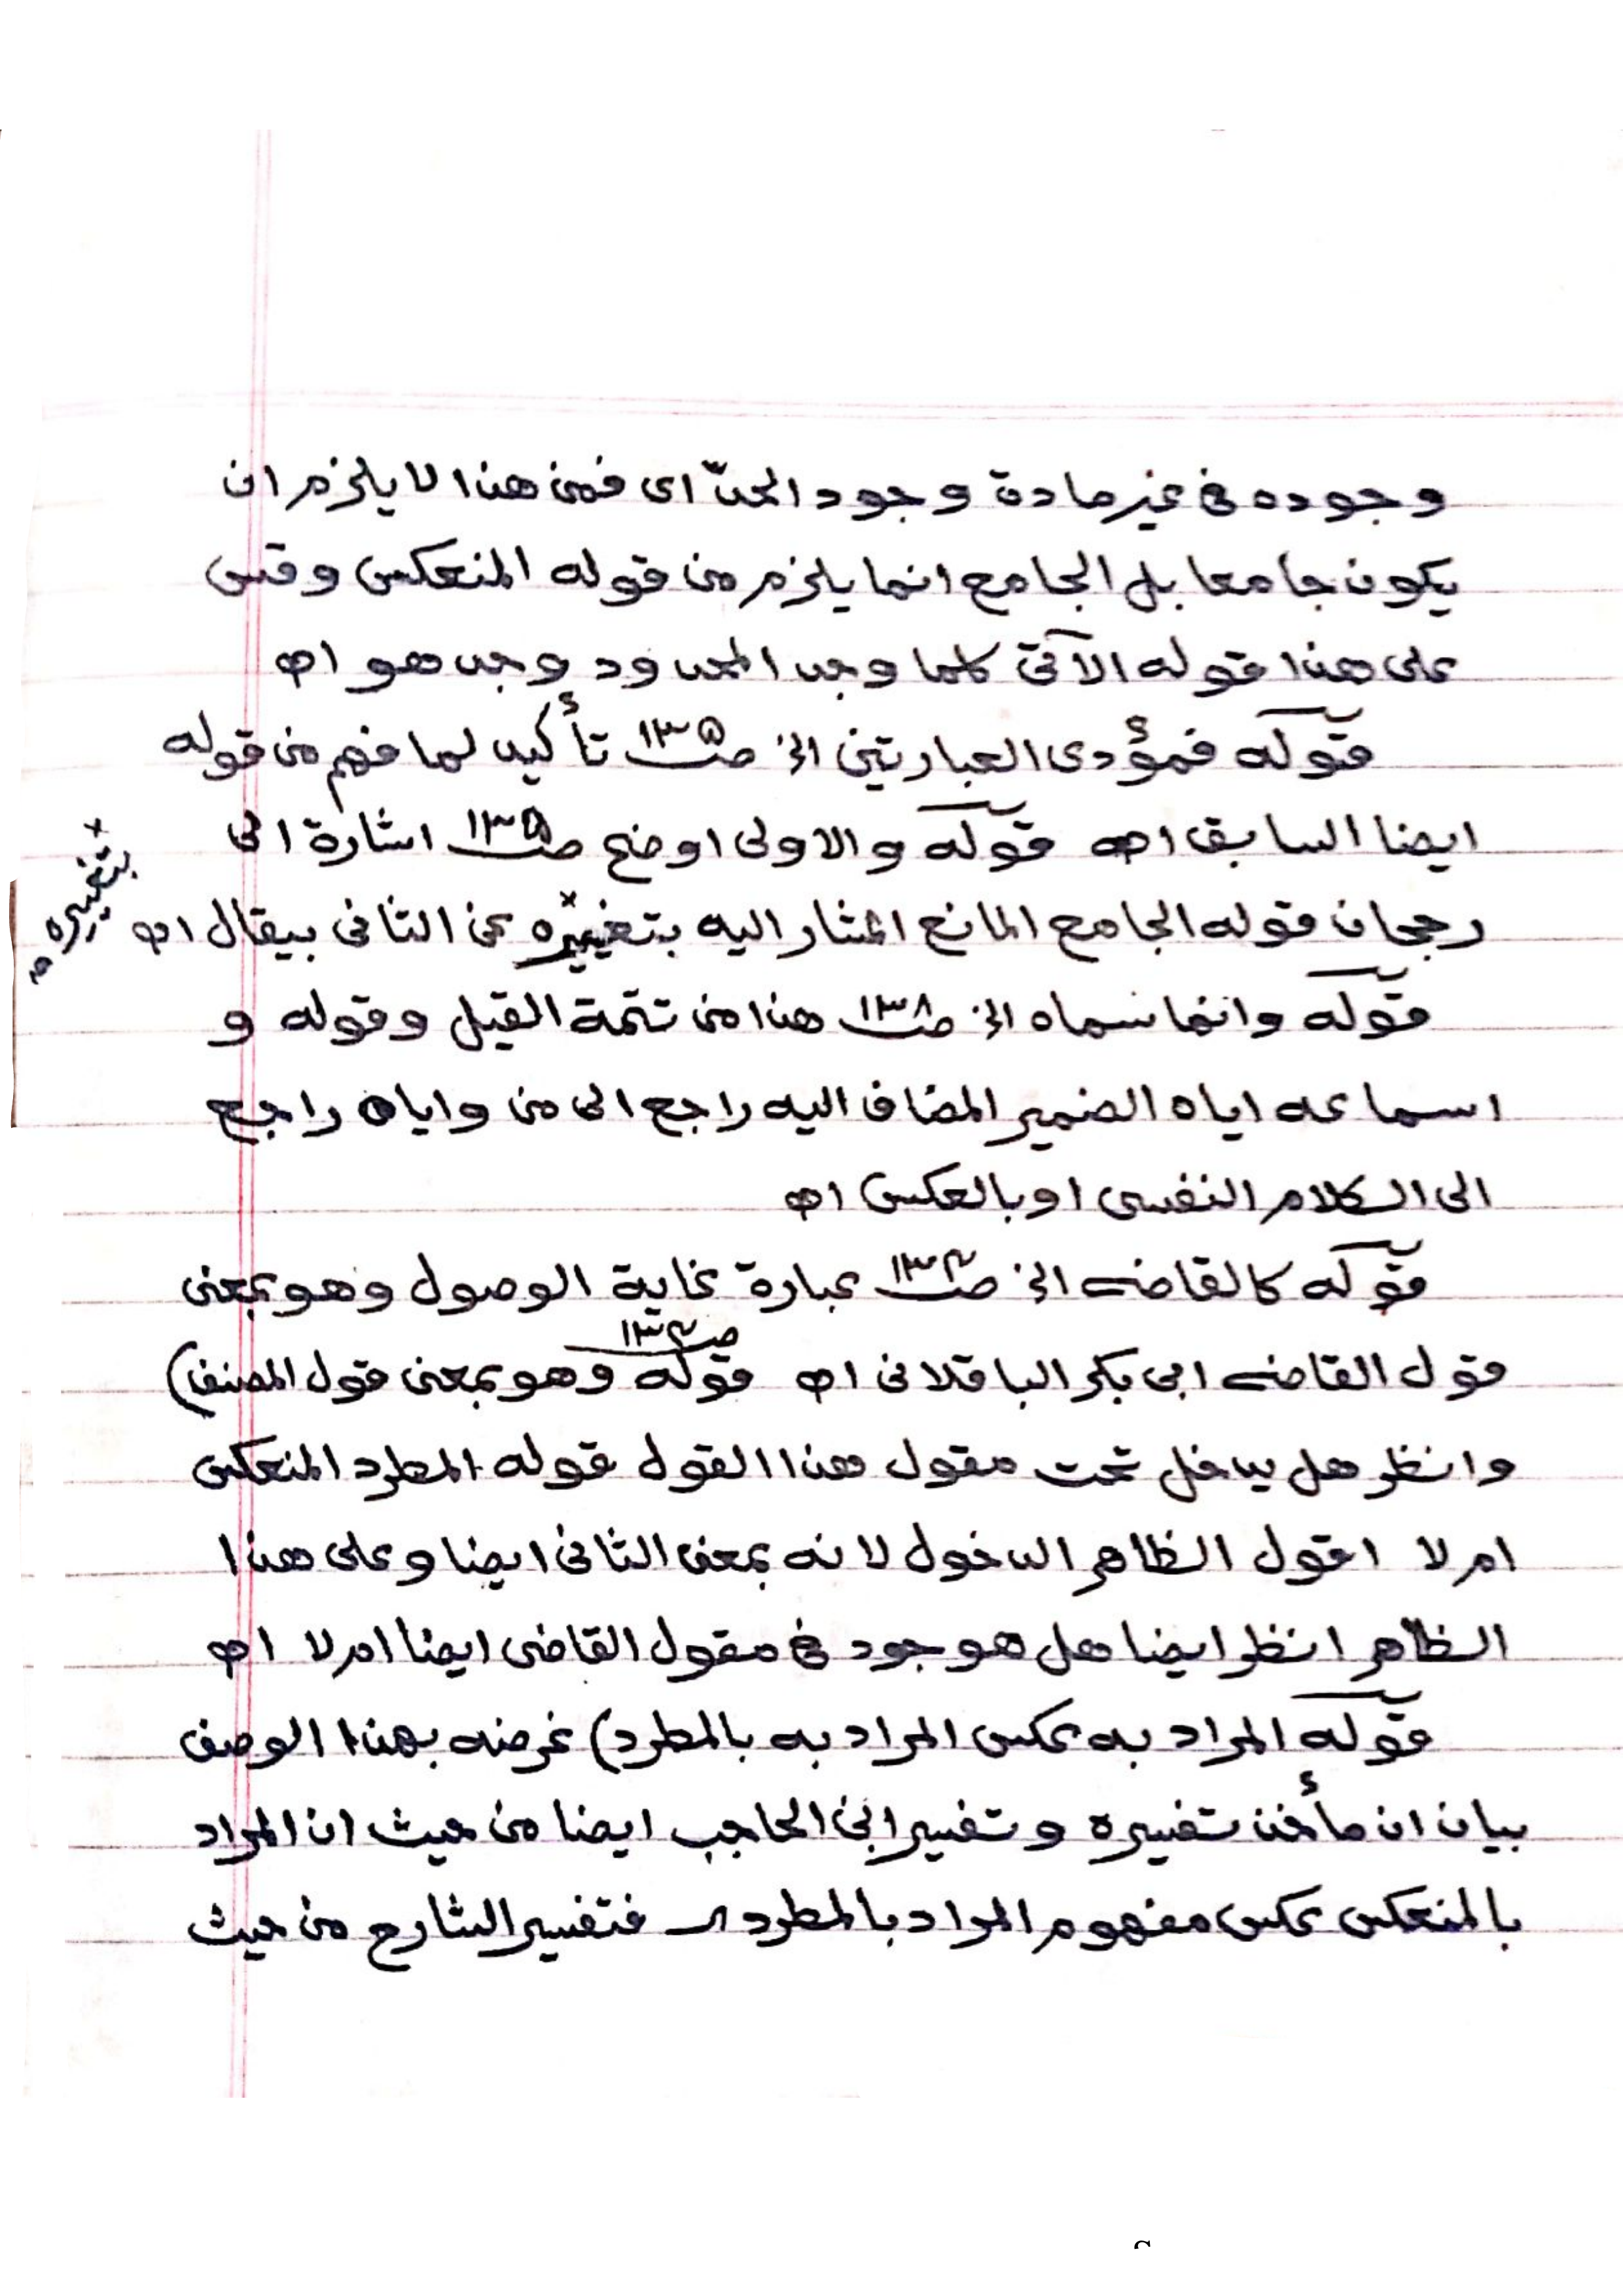 وجوده في غير مادة وجود الحدّ اى فمن هذا لا يلزم ان
يكون جامعا بل الجامع انما يلزم من قوله المنعكس وقس
على هذا قوله الآتى كلما وجد المحدود وجد هو اه
قوله فمؤدى العبارتين الخ صـ١٣٥ تأكيد لما فهم من قوله
ايضا السابق اه قوله والاولى اوضح صـ١٣٥ اشارة الى
رجحان قوله الجامع المانع المشار اليه بتغييره× عن الثانى بيقال اه
× بتغييره م
قوله وانما سماه الخ صـ١٣٨ هذا من تتمة القيل وقوله و
اسماعه اياه الضمير المضاف اليه راجع الى من واياه راجع
الى الكلام النفسى او بالعكس اه
قوله كالقاضى الخ صـ١٣٤ عبارة غاية الوصول وهو بمعنى
قول القاضى ابى بكر الباقلانى اه قوله وهو بمعنى قول المصنف) صـ١٣٤
وانظر هل يدخل تحت مقول هذا القول قوله المطرد المنعكس
ام لا اقول الظاهر الدخول لانه بمعنى الثانى ايضا وعلى هذا
الظاهر انظر ايضا هل هو جود في مقول القاضى ايضا ام لا اه
قوله المراد به عكس المراد به بالمطرد) غرضه بهذا الوصف
بيان ان مأخذ تفسيره وتفسير ابن الحاجب ايضا من حيث ان المراد
بالمنعكس عكس مفهوم المراد بالمطرد فتفسير الشارح من حيث